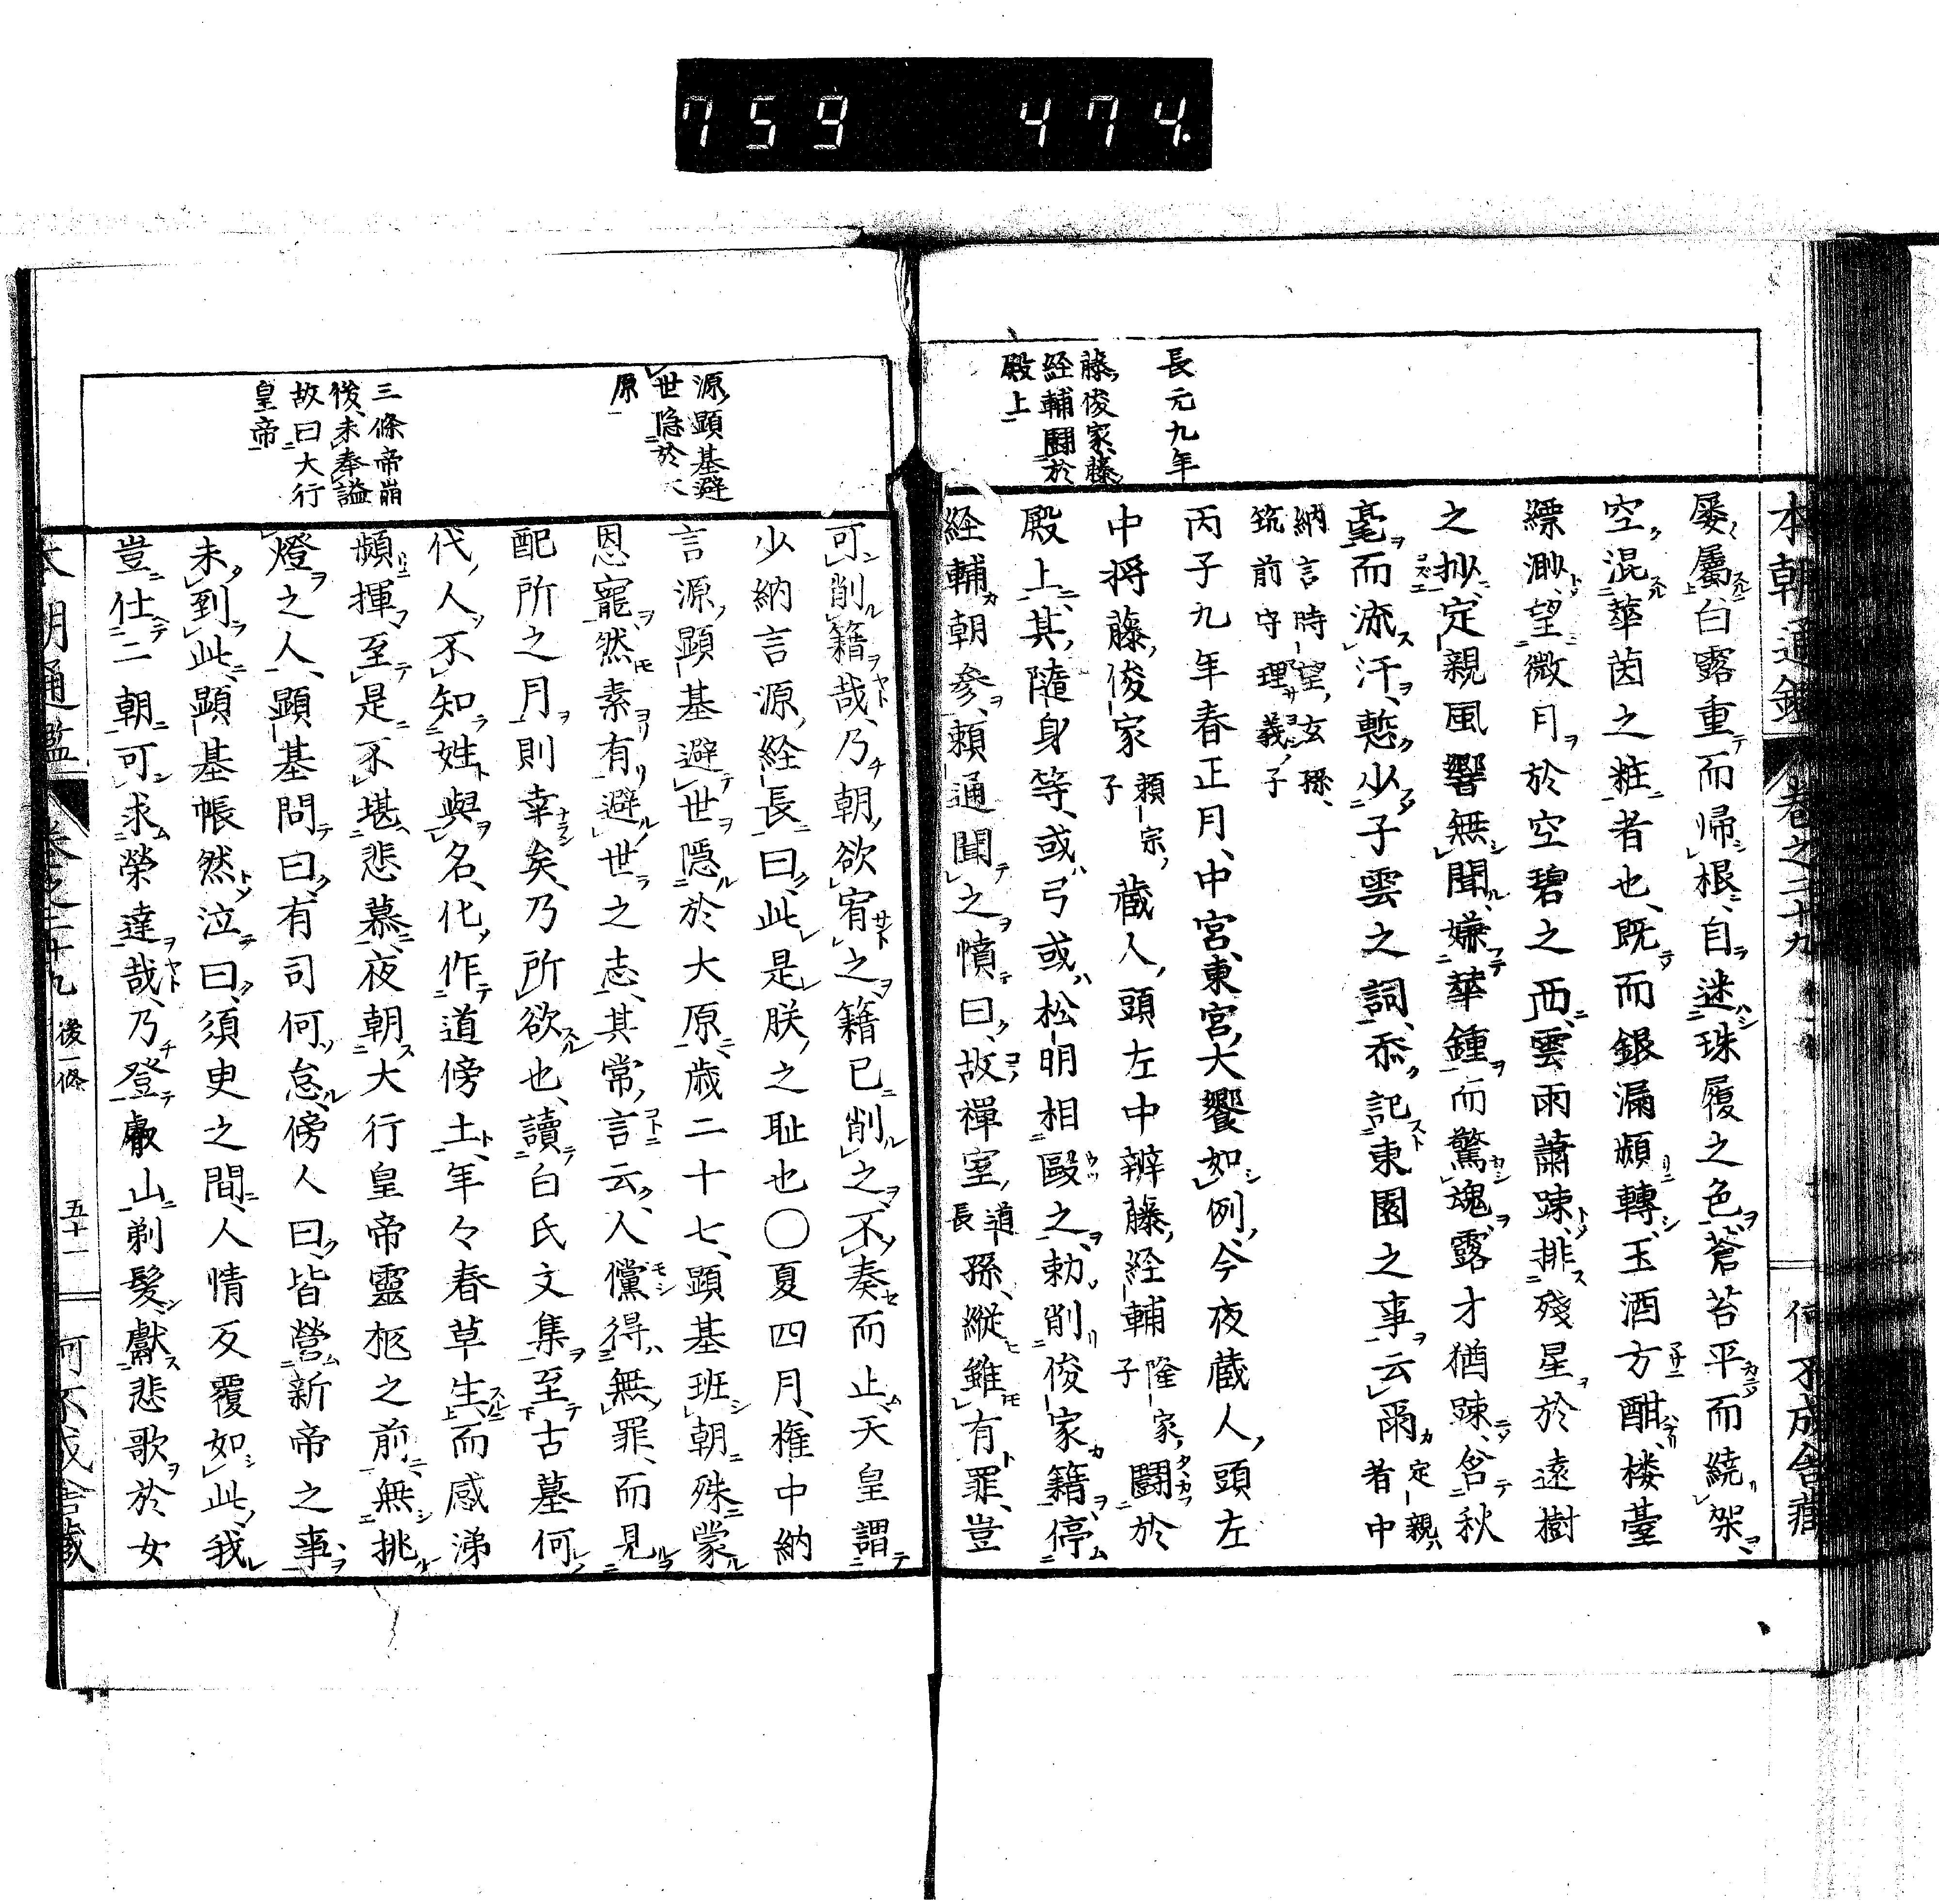 759 474.
長元九年
藤俊家藤
経輔闘於
殿上
屡屬白露重而帰根自迷珠履之色蒼苔平而繞架
空混華茵之粧者也既而銀漏頻轉玉酒方酣楼臺
縹渺望微月於空碧之西雲雨蕭踈排殘星於遠樹
之抄定親風響無聞嫌華鍾而驚魂露才猶踈含秋
毫而流汗慙少子雲之詞忝記東園之事云爾定親者中
納言時望玄孫
筑前守理義子
丙子九年春正月中宮東宮大饗如例今夜蔵人頭左
中将藤俊家頼宗子蔵人頭左中辨藤経輔隆家子闘於
殿上其隨身等或弓或松明相毆之勅削俊家籍停
経輔朝参頼通聞之憤曰故禪室道長孫縦雖有罪豈
源顕基避
世隠於大
原
三條帝崩
後未奉謚
故曰大行
皇帝
可削籍哉乃朝欲宥之籍已削之不奏而止天皇謂
少納言源経長曰此是朕之耻也〇夏四月権中納
言源顕基避世隠於大原歳二十七顕基班朝殊蒙
恩寵然素有避世之志其常言云人儻得無罪而見
配所之月則幸矣乃所欲也讀白氏文集至古墓何
代人不知姓與名化作道傍土年々春草生而感涕
頻揮至是不堪悲慕夜朝大行皇帝靈柩之前無挑
燈之人顕基問曰有司何怠傍人曰皆營新帝之事
未到此顕基帳然泣曰須臾之間人情反覆如此我
豈仕二朝可求榮達哉乃登叡山剃髪獻悲歌於女
本朝通鑑 卷之二十九 後一條 五十一 何不成舎蔵